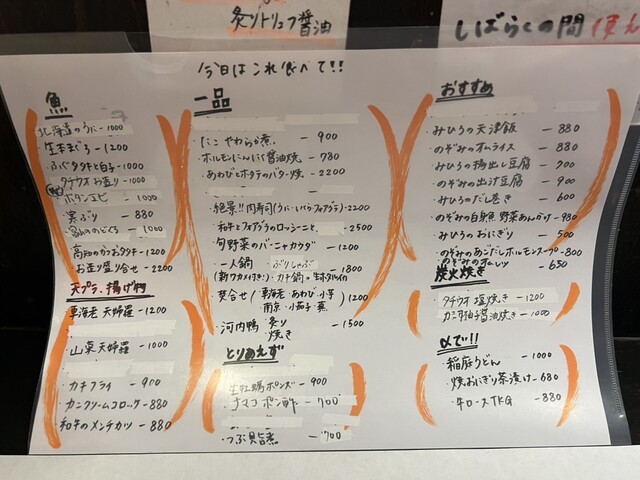 炙りトリュフ醤油
しばらくの間 使え
今日はこれ食べて!!
魚
北海道のうに-1000
生本まぐろ-1200
ふぐタタキと白子-1000
タチウオお造り-1000
ボタンエビ-1000
寒ぶり-880
のどぐろ-1000
高知のかつおタタキ-1200
お造り盛り合せ-2200
天プラ、揚げ物
車海老 天婦羅-1200
山菜天婦羅-1000
カキフライ-900
カニクリームコロッケ-880
和牛のメンチカツ-880
一品
たこ やわらか煮.-900
ホルモンにんにく醤油焼-780
あわびとホタテのバター焼-2200
絶景!!肉寿司(うに・いくら・フォアグラ)-2200
和牛とフォアグラのロッシーニと、-2500
旬野菜のバーニャカウダ-1200
一人鍋 ぶりしゃぶ
(新ワカメ付き)・カキ鍋 -1800
焚合せ(車海老・あわび・小芋
南京・小茄子・蕪)1200
河内鴨 炙り
焼き-1500
とりあえず
生牡蠣ポンズ-900
ナマコポン酢-700
つぶ貝旨煮-700
おすすめ
みひろの天津飯-880
のぞみのオムライス-880
みひろの揚出し豆腐-700
のぞみの出汁豆腐-900
みひろのだし巻き-600
のぞみの白身魚 野菜あんかけ-980
みひろのおにぎり-500
のぞみのあごだしホルモンスープ-800
のぞみのオムレツ-650
炭火焼き
タチウオ 塩焼き-1200
カニ甲羅醤油焼き-1000
〆で!!
稲庭うどん-1000
焼おにぎり茶漬け-680
牛ロースTKG-880